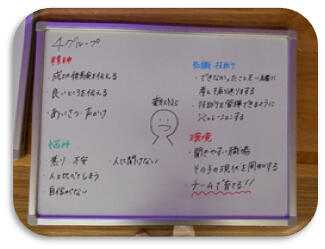 4グループ
精神
・成功体験を伝える
・良いところを伝える
・あいさつ・声かけ
知識・技術
・できなかったことを一緒に
考え振り返りする
・技術を習得できるように
シミュレーションする
新人Ns
悩み
焦り・不安
・人に聞けない
・人と比べてしまう
自信がない
環境
・聞きやすい職場
その子の現状を周知する
・チームで育てる!!